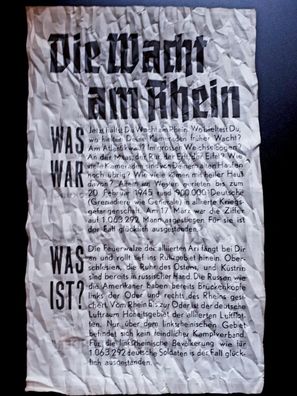 Die Wacht
am Rhein
WAS
WAR
Jetzt hältst Du Wacht am Rhein. Wo hieltest Du,
wo hielten Deine Kameraden früher Wacht?
Am Atlantikwall? Im grossen Weichselbogen?
An der Maas, der Rur, der Erft, der Eifel? Wie
viele Kameraden sind von dem alten Haufen
noch übrig? Wie viele kamen mit heiler Haut
davon? Allein im Westen gerieten bis zum
20. Februar 1945 rund 900.000 Deutsche
(Grenadiere wie Generale) in alliierte Kriegs-
gefangenschaft. Am 17. März war die Ziffer
auf 1.063.292 Mann angestiegen. Für sie ist
der Fall glücklich ausgestanden.
WAS
IST?
Die Feuerwalze der alliierten Ari fängt bei Dir
an und rollt tief ins Ruhrgebiet hinein. Ober-
schlesien, die Ruhr des Ostens, und Küstrin
sind bereits in russischer Hand. Die Russen wie
die Amerikaner haben bereits Brückenköpfe
links der Oder und rechts des Rheins ge-
sichert. Vom Rhein bis zur Oder ist der deutsche
Luftraum Hoheitsgebiet der alliierten Luftflot-
ten. Nur über dem linksrheinischen Gebiet
befindet sich kein feindlicher Kampfverband.
Für die linksrheinische Bevölkerung wie für
1.063.292 deutsche Soldaten is der Fall glück-
lich ausgestanden.